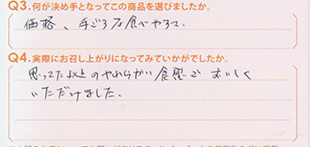 Q3.何が決め手となってこの商品を選びましたか。
価格、手ごろで食べやすそう。
Q4.実際にお召し上がりになってみていかがでしたか。
思ってた以上のやわらかい食感でおいしく
いただけました。